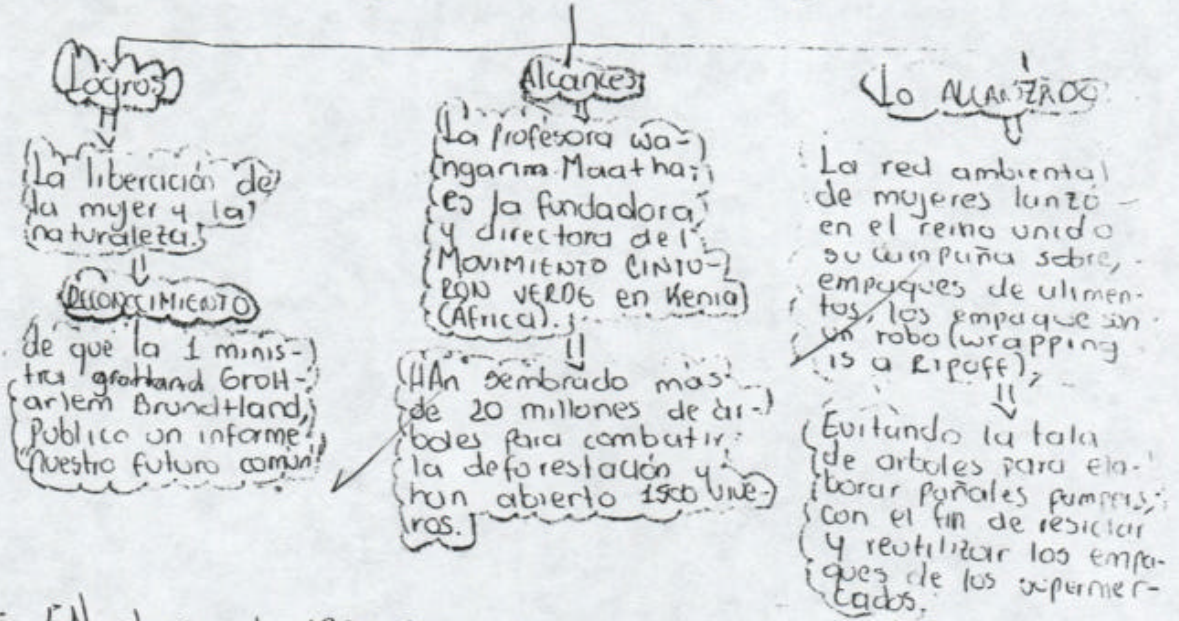 Logros
La liberación de
la mujer y la
naturaleza.
RECONOCIMIENTO
de que la 1 minis-
tra grottland GroH-
arlem Brundtland,
Publico un informe
nuestro futuro común
Alcances
La profesora wa-
ngarim Maathai
es la fundadora
y directora del
MOVIMIENTO CINTU-
RON VERDE en Kenia
(África).
HAn sembrado más
de 20 millones de ár-
boles para combatir
la deforestación y
han abierto 1500 vive-
ros.
Lo ALCANZADO
La red ambiental
de mujeres lanzó
en el reino unido
su campaña sobre,
empaques de alimen-
tos, los empaque son
un robo (wrapping
is a Ripoff),
Evitando la tala
de arboles para ela-
borar pañales pampers,
con el fin de resiclar
y reutilizar los empa-
ques de los supermer-
cados.
EN